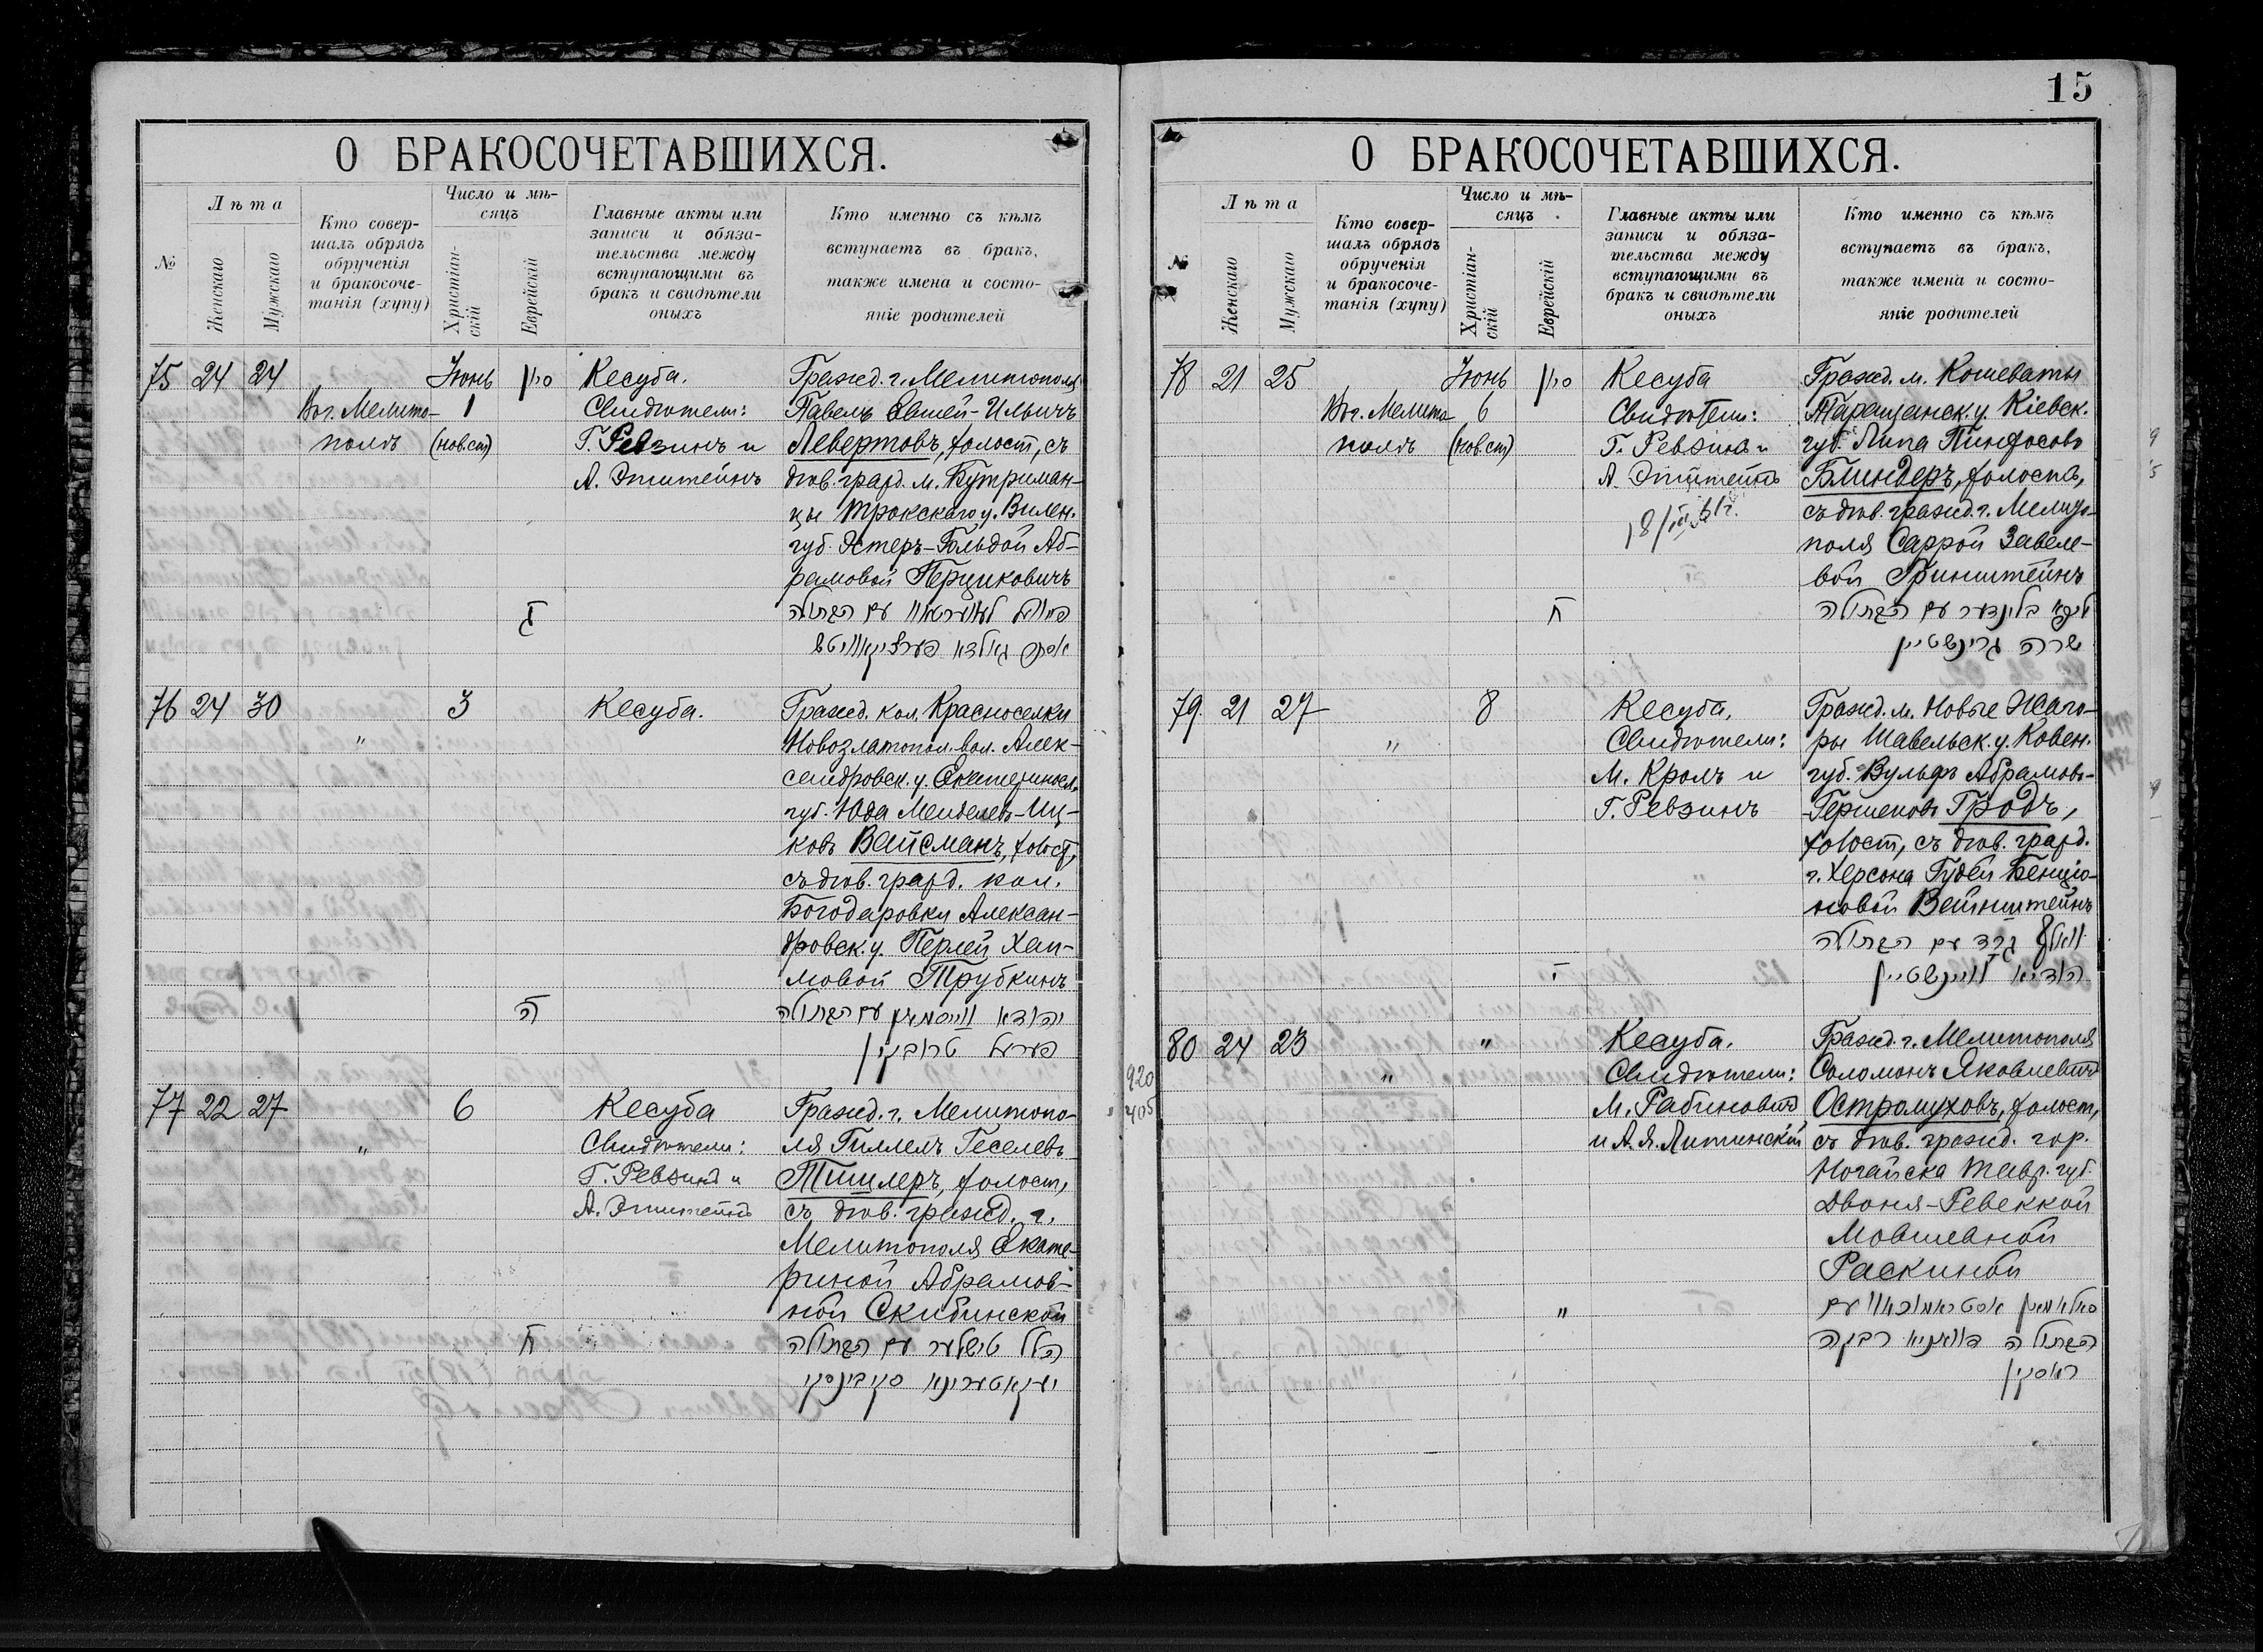 15
О БРАКОСОЧЕТАВШИХСЯ.
№
Лѣта
Женскаго
Мужскаго
Кто совер-
шалъ обрядъ
обрученія
и бракосоче-
танія (хупу)
Число и мѣ-
сяцъ
Христіан-
скій
Еврейскій
Главные акты или
записи и обяза-
тельства между
вступающими въ
бракъ и свидѣтели
оныхъ
Кто именно съ кѣмъ
вступаетъ въ бракъ,
также имена и состо-
яніе родителей
75 24 24
Въ г. Мелито-
полѣ
Іюнь
1
(нов.ст)
סיון
ג
Кесуба.
Свидѣтели:
Г. Ревзинъ и
А. Эпштейнъ
Гражд. г. Мелитополя
Павелъ Евшей-Ильичъ
Левертовъ, холост, съ
дѣв. гражд. м. Бутриман-
цы Трокскаго у. Вилен.
губ. Эстеръ-Гольдой Аб-
рамовой Перциковичъ
לעווערטאוו עם הבתולה
אסתר גאלדא פערציקאוויטש
76 24 30
"
3
ה
Кесуба.
Гражд. кол. Красноселки
Новозлатопол. вол. Алек-
сандровск. у. Екатериносл.
губ. Юда Менделевъ-Иц-
ковъ Вайсманъ, холост,
съ дѣв. гражд. кол.
Богодаровки Алексан-
дровск. у. Перлей Хаи-
мовой Трубкинъ
יהודא ווייסמאן עם הבתולה
פערל טרובקין
77 22 27
"
6
ח
Кесуба
Свидѣтели:
Г. Ревзинъ и
А. Эпштейнъ
Гражд. г. Мелитопо-
ля Гиллель Геселевъ
Тишлеръ, холост,
съ дѣв. гражд. г.
Мелитополя Екате-
риной Абрамов-
ной Скибинской
הלל טישלער עם הבתולה
יעקאטערינא סקיבינסקי
О БРАКОСОЧЕТАВШИХСЯ.
№
Лѣта
Женскаго
Мужскаго
Кто совер-
шалъ обрядъ
обрученія
и бракосоче-
танія (хупу)
Число и мѣ-
сяцъ
Христіан-
скій
Еврейскій
Главные акты или
записи и обяза-
тельства между
вступающими въ
бракъ и свидѣтели
оныхъ
Кто именно съ кѣмъ
вступаетъ въ бракъ,
также имена и состо-
яніе родителей
78 21 25
Въ г. Мелито
полѣ
Іюнь
6
(нов.ст)
סיון
ח
Кесуба
Свидѣтели:
Г. Ревзинъ и
А. Эпштейнъ
Гражд. м. Кошеваты
Таращанск. у. Кіевск.
губ. Липа Пинхосовъ
Блиндеръ, холостъ,
съ дѣв. гражд. г. Мелито-
поля Саррой Завеле-
вой Гринштейнъ
ליפא בלינדער עם הבתולה
שרה גרינשטיין
79 21 27
"
8
י
Кесуба,
Свидѣтели:
М. Кролъ и
Г. Ревзинъ
Гражд. м. Новые Жаго-
ры Шавельск. у. Ковен.
губ. Вульфъ Абрамовъ-
-Гершеновъ Гродъ,
холост, съ дѣв. гражд.
г. Херсона Гудей Бенціо-
новой Вейнштейнъ
וואלף גרד עם הבתולה
הודיא וויינשטיין
80 24 23
"
"
"
Кесуба.
Свидѣтели:
М. Рабиновичъ
и А. Я. Литинскій
Гражд. г. Мелитополя
Соломонъ Яковлевичъ
Остромуховъ, холост,
съ дѣв. гражд. гор.
Ногайска Тавр. губ.
Двоня-Ревеккой
Мовшевной
Раскиной
סאלאמאן אסטראמוכאוו עם
הבתולה דוואניא רבקה
ראסקין
920
405